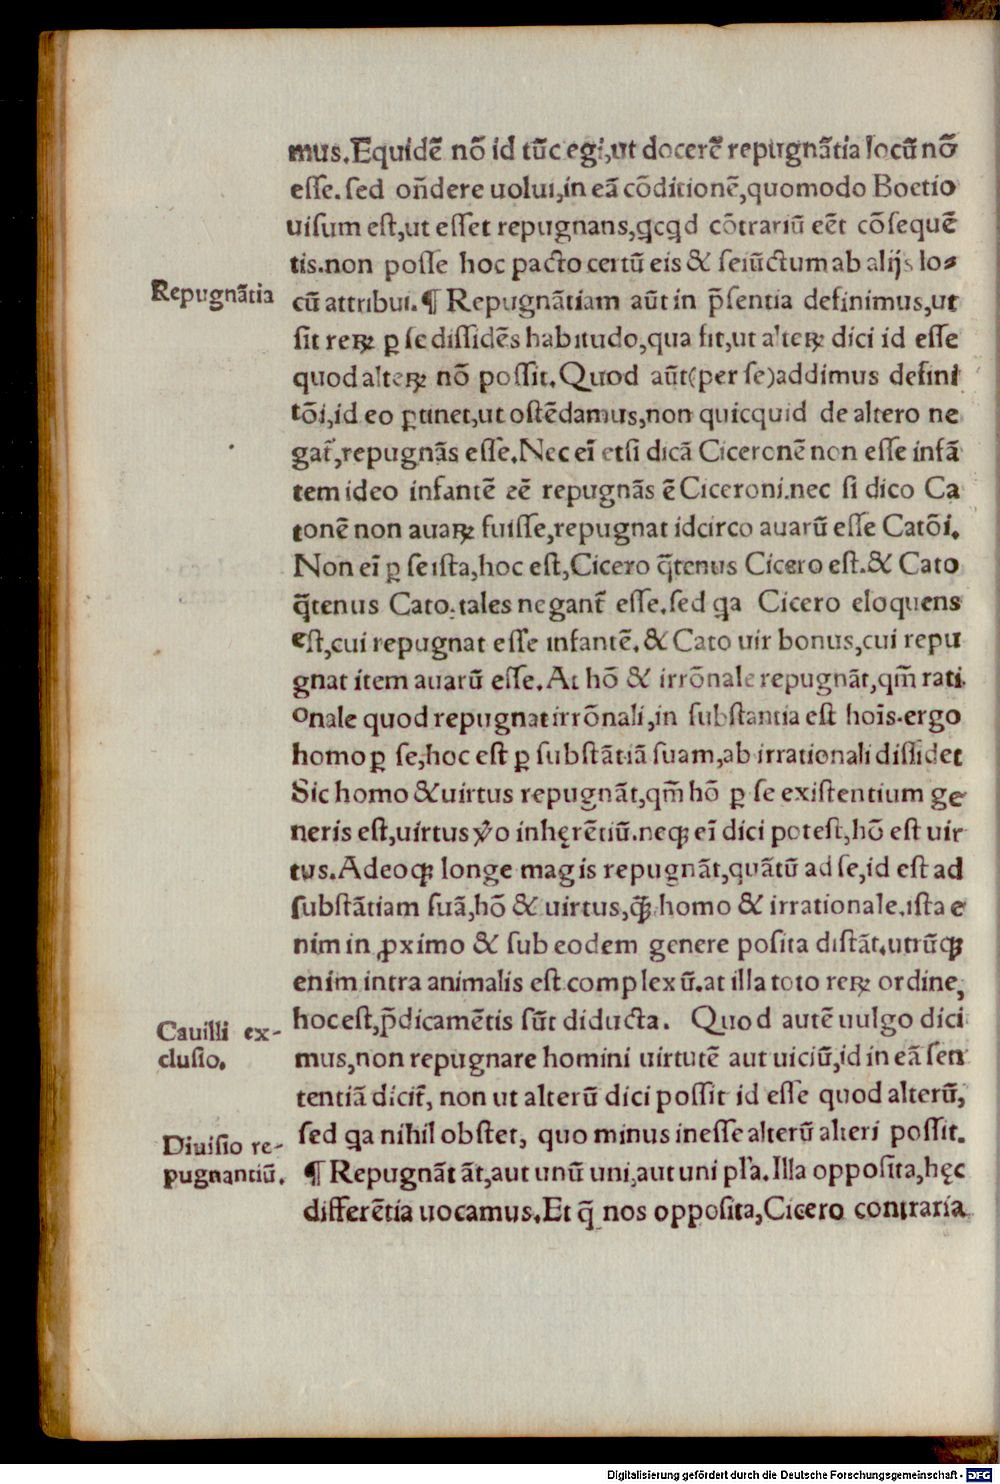 mus.Equidē nō id tūc egi,ut docerē repugnātia locū nō
esse. sed oñdere uolui,in eā cōditionē,quomodo Boetio
uisum est,ut esset repugnans,qcqd cōtrariū eēt cōsequē
tis.non posse hoc pacto certū eis & seiūctum ab alijs lo⸗
Repugnātia
cū attribui.¶ Repugnātiam aūt in p̄sentia definimus,ut
sit reꝝ ꝑ se dissidēs habitudo,qua fit,ut alteꝝ dici id esse
quod alteꝝ nō possit.Quod aūt(per se)addimus defini
tōi,id eo ꝑtinet,ut ostēdamus,non quicquid de altero ne
gat̃,repugnās esse.Nec eī etsi dicā Ciceronē non esse infā
tem ideo infantē eē repugnās ē Ciceroni.nec si dico Ca
tonē non auaꝝ fuisse,repugnat idcirco auarū esse Catōi.
Non eī ꝑ se ista,hoc est,Cicero q̄tenus Cicero est.& Cato
q̄tenus Cato.tales negant̃ esse.sed qa Cicero eloquens
est,cui repugnat esse infantē.& Cato uir bonus,cui repu
gnat item auarū esse.At hō & irrōnale repugnāt,qm̄ rati
onale quod repugnat irrōnali,in substantia est hoīs.ergo
homo ꝑ se,hoc est ꝑ substātiā suam,ab irrationali dissidet
Sic homo & uirtus repugnāt,qm̄ hō ꝑ se existentium ge
neris est,uirtus ꝟo inhęrētiū.neqꝫ eī dici potest,hō est uir
tus.Adeoqꝫ longe magis repugnāt,quātū ad se,id est ad
substātiam suā,hō & uirtus,q̄ꝫ homo & irrationale.ista e
nim in ꝓximo & sub eodem genere posita distāt.utrūqꝫ
enim intra animalis est complexū.at illa toto reꝝ ordine,
hoc est,p̄dicamētis sūt diducta. Quod autē uulgo dici
Cauilli ex-
clusio.
mus,non repugnare homini uirtutē aut uiciū,id in eā sen
tentiā dicit̃, non ut alterū dici possit id esse quod alterū,
sed qa nihil obstet, quo minus inesse alterū alteri possit.
Diuisio re-
pugnantiū.
¶ Repugnāt āt,aut unū uni,aut uni pl'a.Illa opposita,hęc
differētia uocamus.Et q̄ nos opposita,Cicero contraria
Digitalisierung gefördert durch die Deutsche Forschungsgemeinschaft - DFG